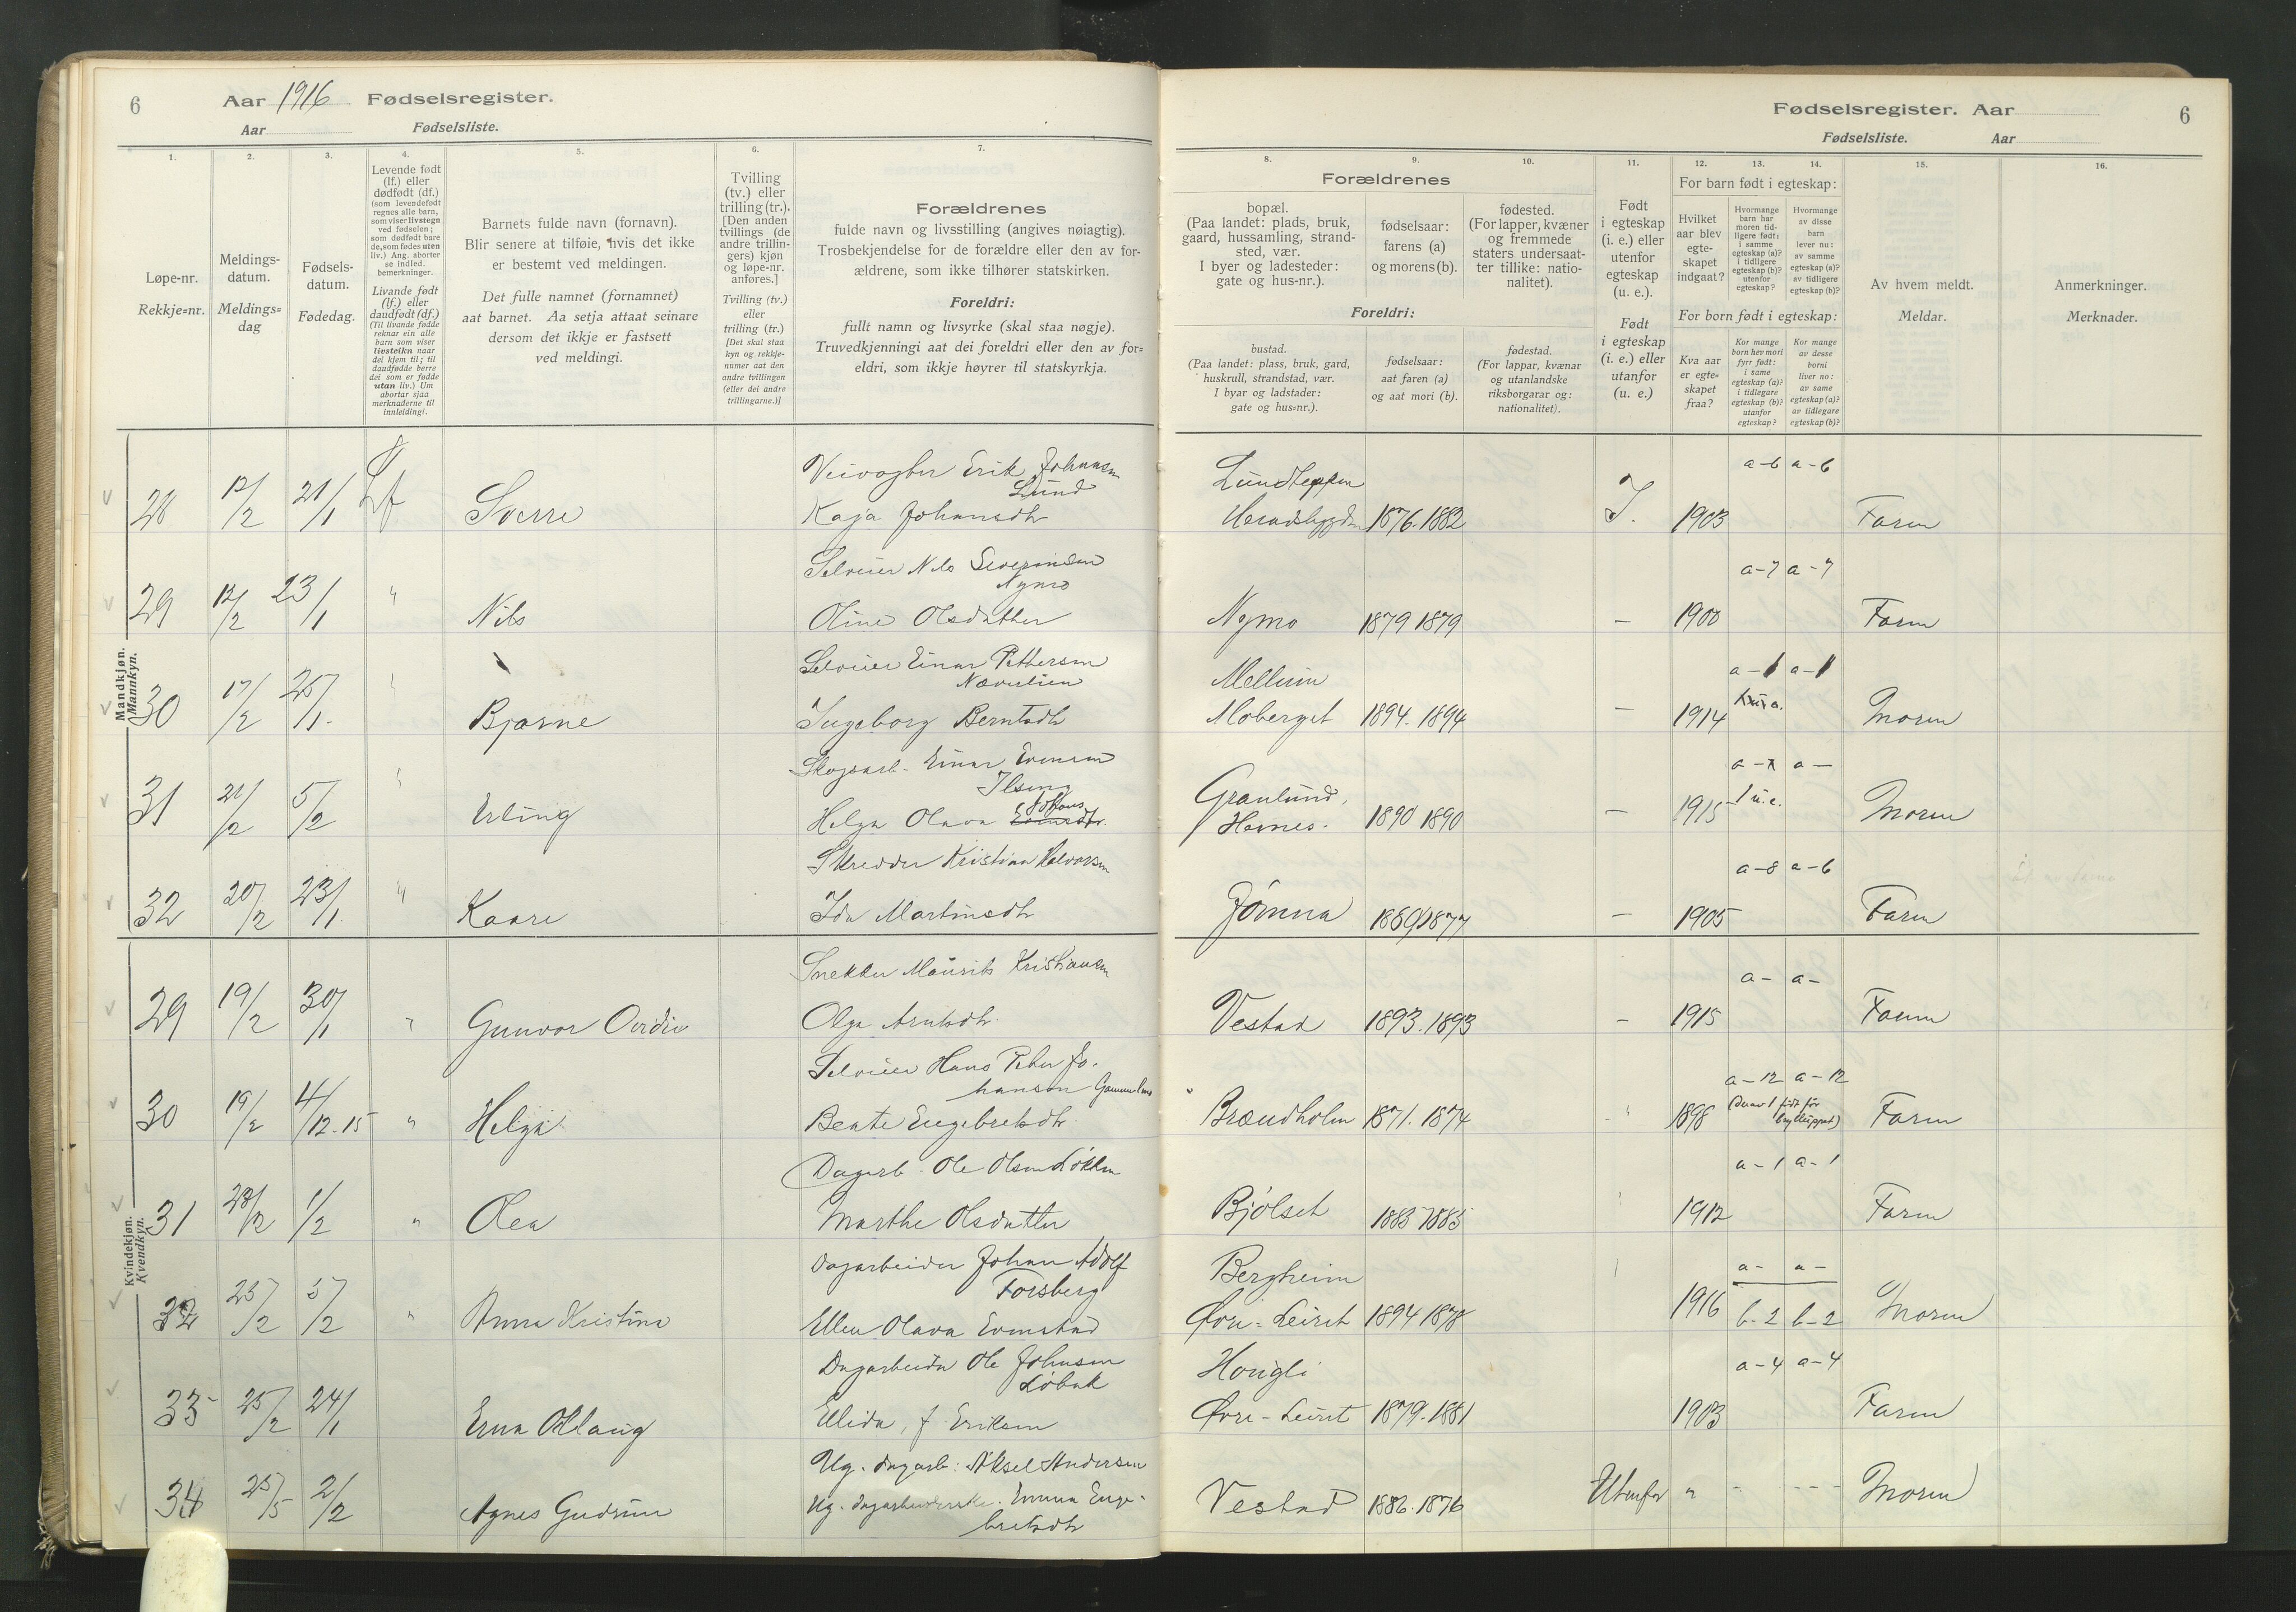 6
Aar 1916 Fødselsregister.
Aar Fødselsliste.
1.
2.
3.
4.
5.
6.
7.
Løpe-nr.
Rekkje=nr.
Meldings-
datum.
Meldings=
dag
Fødsels-
datum.
Fødedag.
Levende født
(lf.) eller
dødfødt (df.)
(som levendefødt
regnes alle barn,
som viser livstegn
ved fødselen;
som dødfødt bare
de, som fødes uten
liv.) Ang. aborter
se indled.
bemerkninger.
Livande født
(lf.) eller
daudfødt (df.)
(Til livande fødde
reknar ein alle
barn som viser
livsteikn naar
dei kjem til; til
daudfødde berre
dei som er fødde
utan liv.) Um
abortar sjaa
merknaderne til
innleidingi.
Barnets fulde navn (fornavn).
Blir senere at tilføie, hvis det ikke
er bestemt ved meldingen.
Det fulle namnet (fornamnet)
aat barnet. Aa setja attaat seinare
dersom det ikkje er fastsett
ved meldingi.
Tvilling
(tv.) eller
trilling (tr.).
[Den anden
tvillings (de
andre trillin-
gers) kjøn
og løpe-nr.
anføres.]
Tvilling (tv.)
eller
trilling (tr.)
[Det skal staa
kyn og rekkje-
numer aat den
andre tvillingen
(eller dei andre
trillingarne.)]
Forældrenes
fulde navn og livsstilling (angives nøiagtig).
Trosbekjendelse for de forældre eller den av for-
ældrene, som ikke tilhører statskirken.
Foreldri:
fullt namn og livsyrke (skal staa nøgje).
Truvedkjenningi aat dei foreldri eller den av for=
eldri, som ikkje høyrer til statskyrkja.
Mandkjøn.
Mannkyn.
28 12/2 21/1 Lf Sverre
Veivogter Erik Johansen
Lund
Kaja Johansdtr
29 12/2 23/1 " Nils
Selveier Nils Severinsen
Nymo
Oline Olsdatter
30 17/2 25/1. Bjarne
Selveier Einar Pettersen
Næverlien
Ingeborg Berntsdtr
31 21/2 5/2 Erling
Skogsarb. Einar Evensen
Ilseng
Helga Olava Johans
32 20/2 23/1. " Kaare
Skredder Kristian Halvorsen
Ida Martinsdtr
Kvindekjøn.
Kvendkyn.
29 19/2 30/1 " Gunvor Ovidie
Snekker Maurits Kristiansen
Olga Arntsdtr.
30 19/2 4/12-15 " Helga
Selveier Hans Peter Jo-
hansen
Beate Engebretsdtr
31 23/2 1/2 " Olea
Dagarb. Ole Olsen Løkken
Marthe Olsdatter
32 25/2 5/2 " Anna Kristina
Dagarbeider Johan Adolf
Forsberg
Ellen Olava Evenstad
33 25/2 24/1 Erna Ollaug
Dagarbeider Ole Johnsen
Løbak
Ellida, f. Eriksen
34 25/5 2/2 Agnes Gudrun
Ug. dagarb: Aksel Andersen
Ug. dagarbeiderske. Emma Enge-
bretsdtr
Fødselsregister. Aar
6
Fødselsliste. Aar
8.
9.
10.
11.
12.
13.
14.
15.
16.
Forældrenes
bopæl.
(Paa landet: plads, bruk,
gaard, hussamling, strand-
sted, vær.
I byer og ladesteder:
gate og hus-nr.).
fødselsaar:
farens (a)
og morens (b).
fødested.
(For lapper, kvæner
og fremmede
staters undersaat-
ter tillike: natio-
nalitet).
Foreldri:
bustad.
(Paa landet: plass, bruk, gard,
huskrull, strandstad, vær.
I byar og ladstader:
gate og hus=nr.).
fødselsaar:
aat faren (a)
og aat mori (b).
fødestad.
(For lappar, kvænar
og utanlandske
riksborgarar og:
nationalitet).
Født
i egteskap
(i. e.) eller
utenfor
egteskap
(u. e.).
Født
i egteskap
(i. e.) eller
utanfor
(u. e.)
For barn født i egteskap:
Hvilket
aar blev
egte-
skapet
indgaat?
Hvormange
barn har
moren tid-
ligere født:
i samme
egteskap (a)?
i tidligere
egteskap (b)?
utenfor
egteskap?
Hvormange
av disse
barn
lever nu:
av samme
egteskap (a)?
av tidligere
egteskap (b)?
For born født i egteskap:
Kva aar
er egte=
skapet
fraa?
Kor mange
born hev mori
fyrr født:
i same
egteskap (a)?
i tidlegare
egteskap (b)?
utanfor
egteskap?
Kor mange
av desse
borni
liver no:
av same
egteskap (a)?
av tidlegare
egteskap (b)?
Av hvem meldt.
Meldar.
Anmerkninger.
Merknader.
Lundteppen
Heradsbygden 1876. 1882 I. 1903 a-6 a-6 Faren
Nymo 1879 1879 — 1900 a-7 a-7 Faren
Mellum
Moberget 1894. 1894 — 1914 a-1 a-1 Moren
Granlund,
Hernes. 1890 1890 — 1915 a- a — 1 u.e. Moren
Jømna 1877 — 1905 a-8 a-6 Faren
Vestad 1893. 1893 — 1915 a- a- Faren
Brændholm 1871. 1874 " 1898 a-12 a-12
(derav 1 født før
brylluppet) Faren
Bjølset 1883 1885 1912 a-1 a-1 Faren
Bergheim
Øvre-Leiret 1894 1878 1916 a- a- b-2 b-2 Moren
Hougli
Øvre-Leiret 1879. 1881 1903 a-4 a-4 Faren
Vestad 1886. 1876 Utenfor " - --- Moren